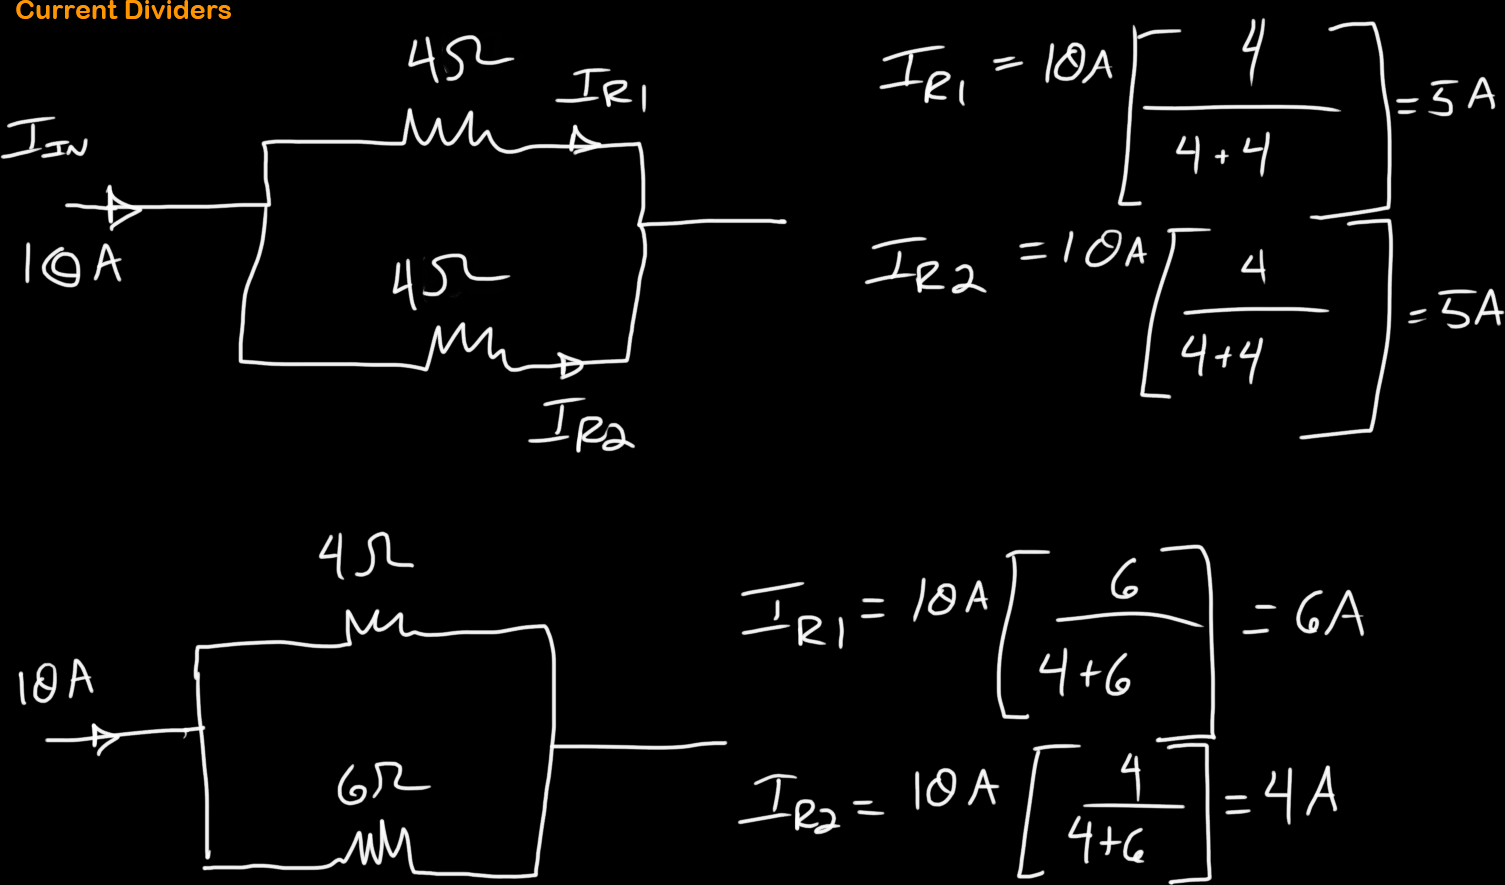 Current Dividers
4Ω
I_R1
I_IN
10A
4Ω
I_R2
I_R1 = 10A [4 / (4+4)] = 5A
I_R2 = 10A [4 / (4+4)] = 5A
4Ω
10A
6Ω
I_R1 = 10A [6 / (4+6)] = 6A
I_R2 = 10A [4 / (4+6)] = 4A